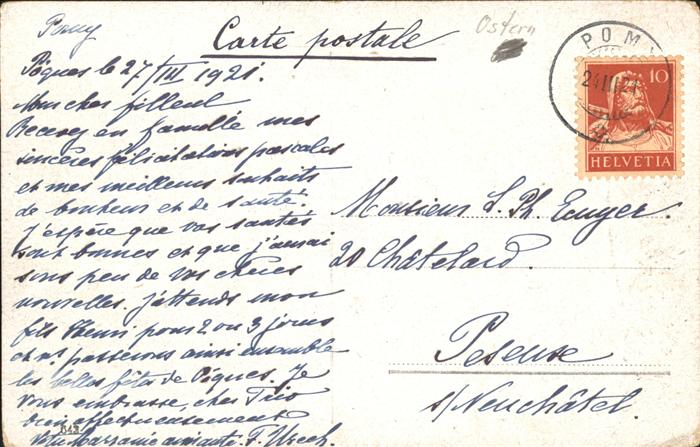 Pomy
Carte postale
Ostern
POMY
24 III 21
10
HELVETIA
Pâques le 27/III 1921.
Mon cher filleul
Recevez en famille mes
sincères félicitations pascales
et mes meilleurs souhaits
de bonheur et de santé.
J'espère que vos santés
sont bonnes et que j'aurai
sous peu de vos chères
nouvelles. J'attends mon
fils Henri pour 2 ou 3 jours
et ns. passerons ainsi ensemble
les belles fêtes de Pâques. Je
vous embrasse, cher
bien affectueusement
Votre marraine aimante F.
Monsieur S. Ph. Ecuyer.
20 Châtelard.
Peseux
s/Neuchâtel.
643